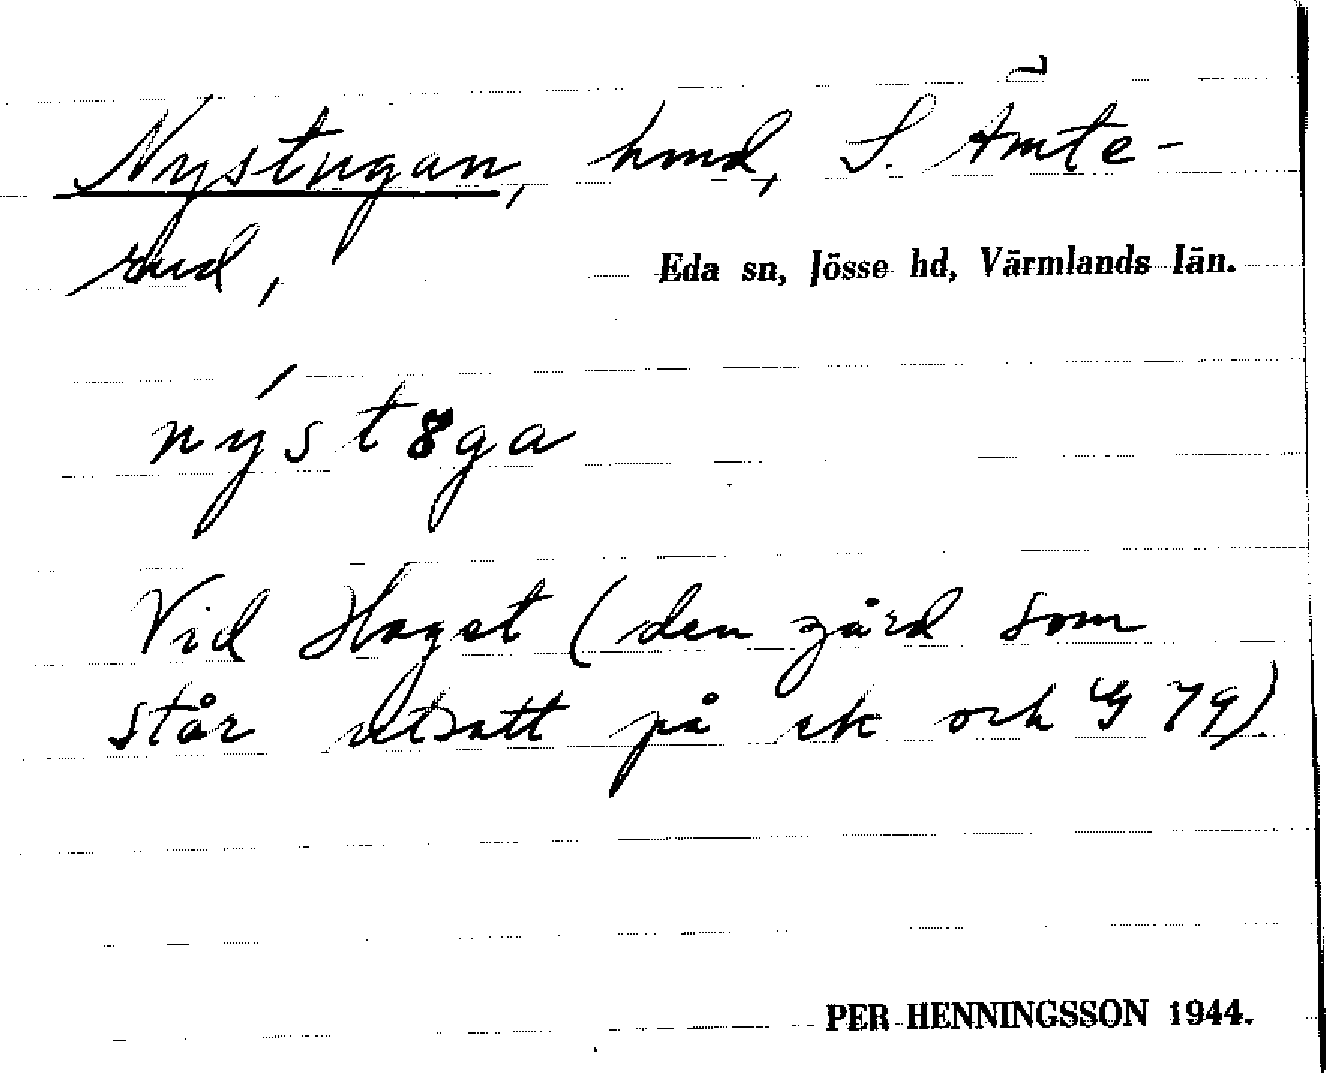 Nystugan, hmd, S. Ämte-
rud,
Eda sn, Jösse hd, Värmlands län.
nýstȣga
Vid Haget (den gård som
står utsatt på ek och G 79)
PER HENNINGSSON 1944.